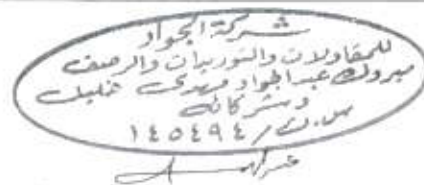 شركة الجواد
للمقاولات والتوريدات والرصف
مبروك عبد الجواد مهدى خليل
وشركاه
س.ت / ١٤٥٤٩٤